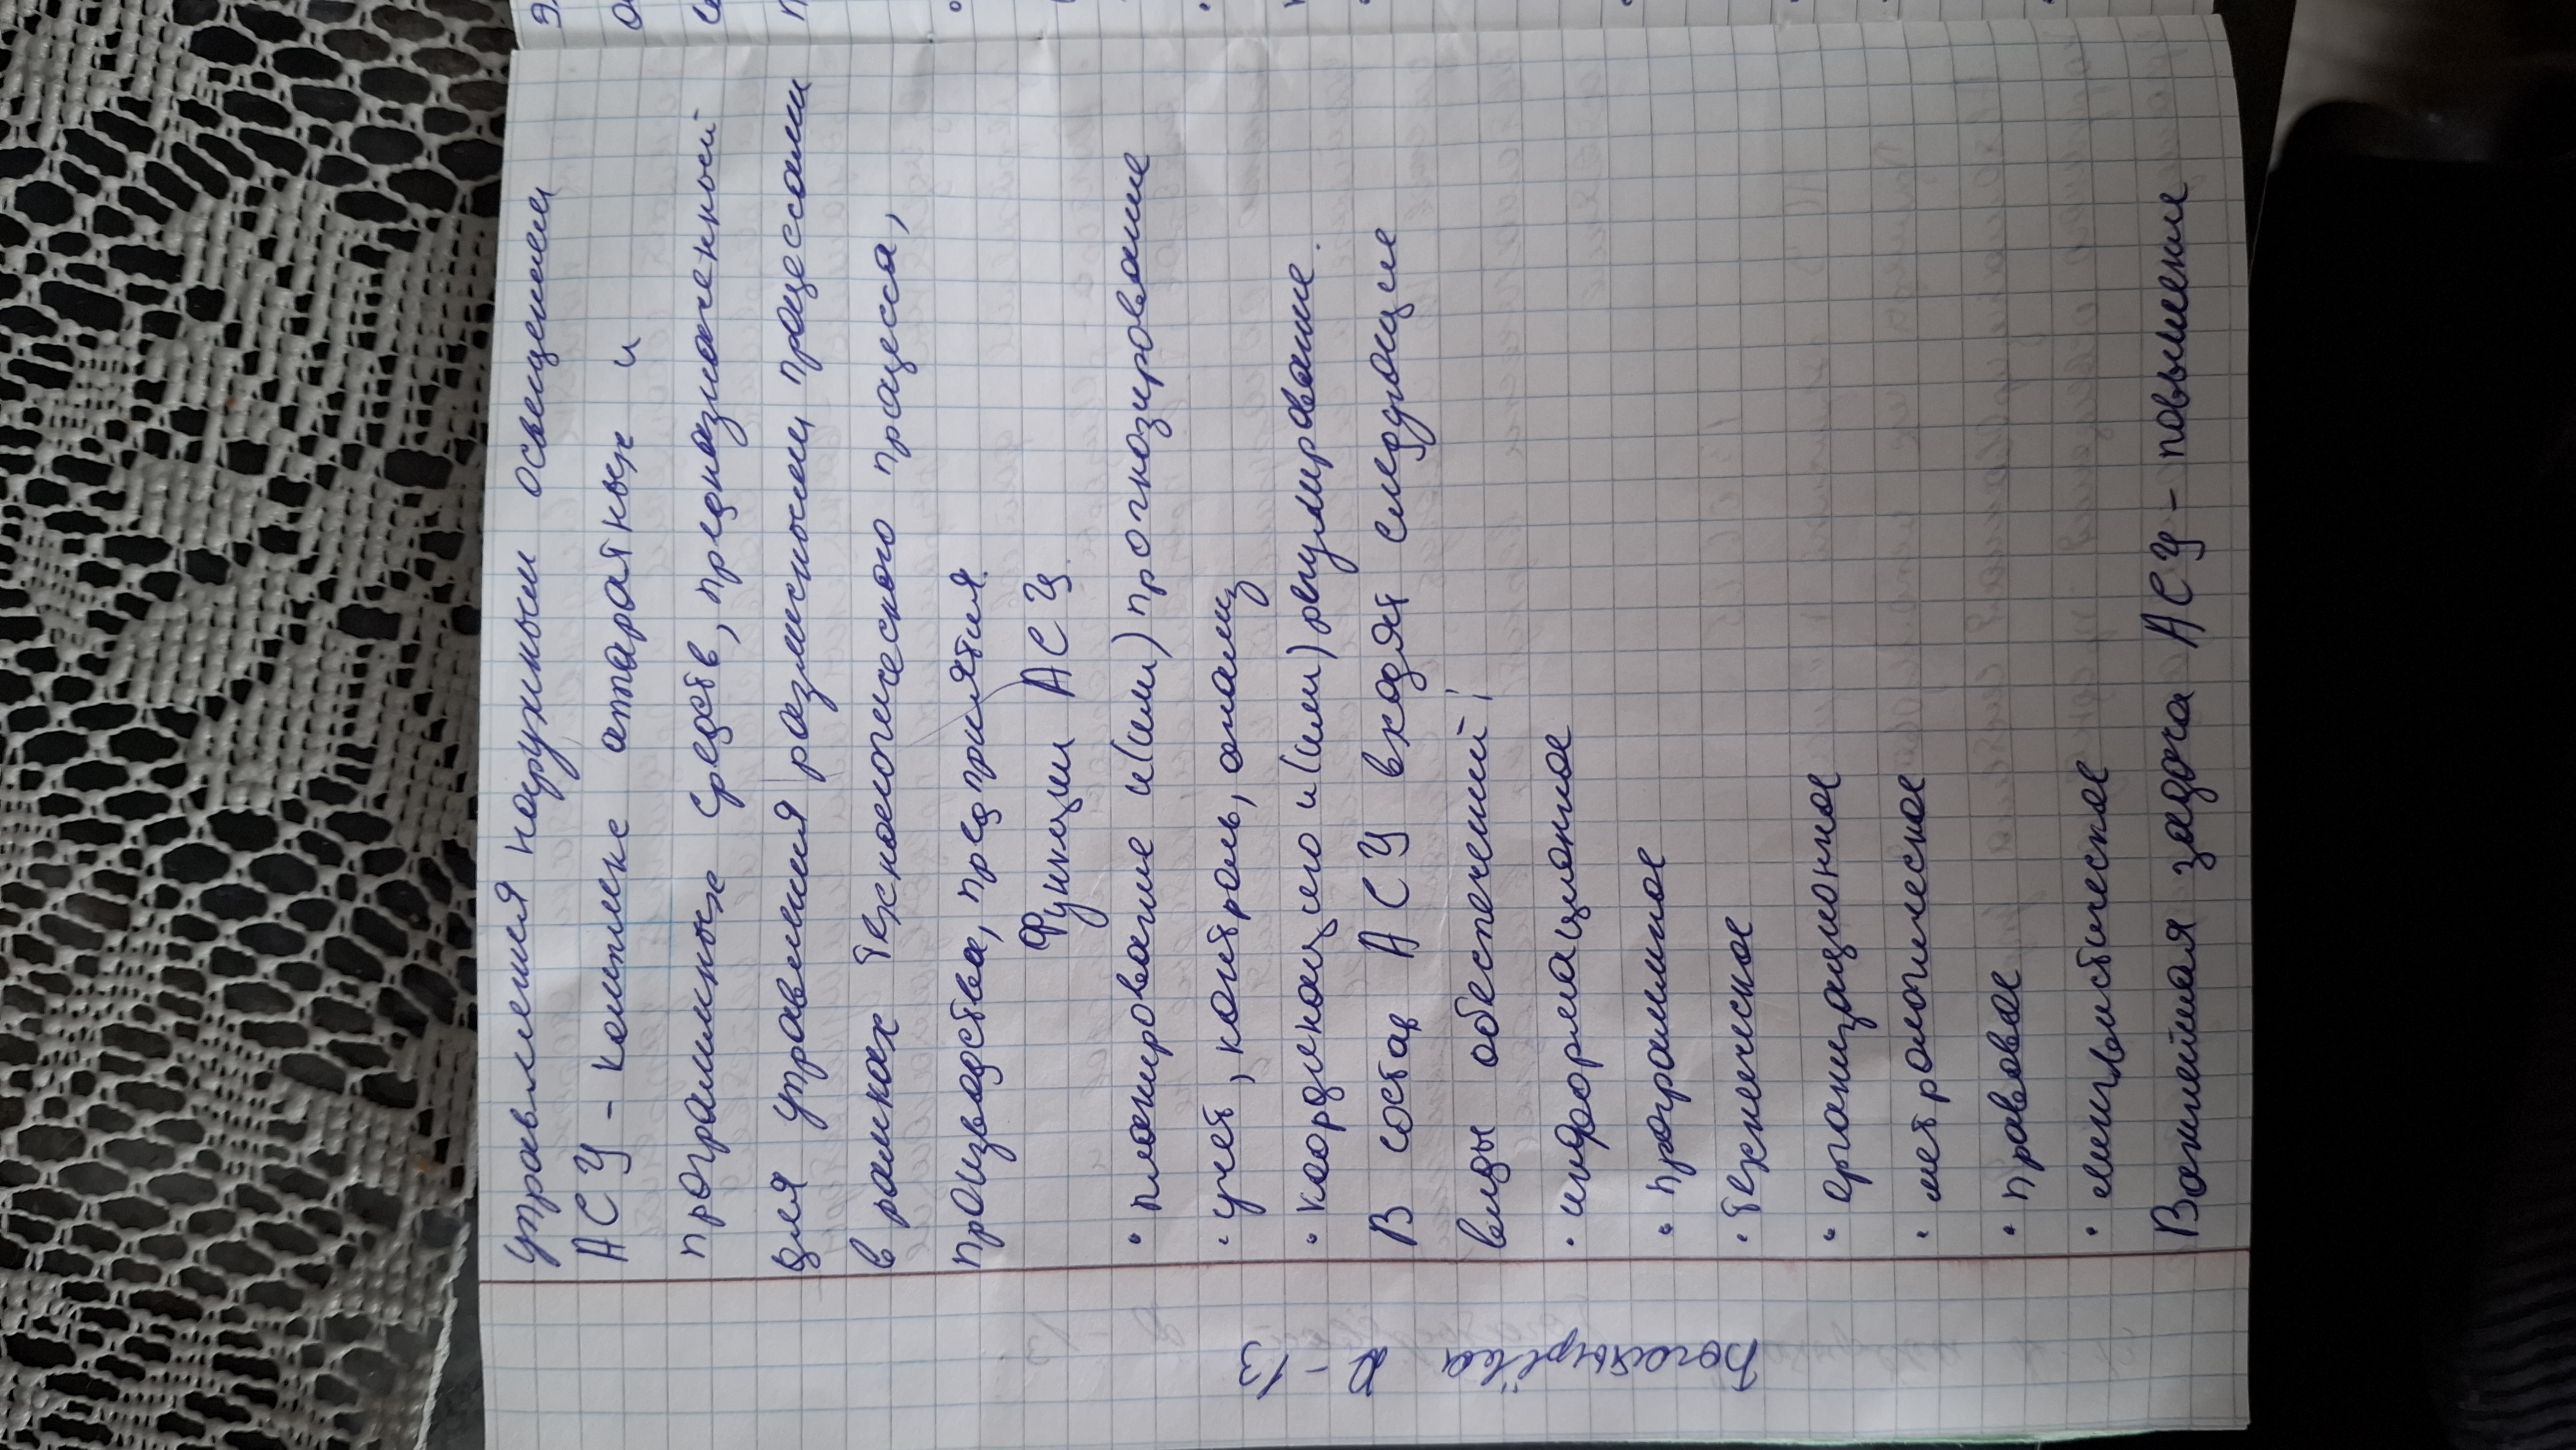 управления наружным освещением
АСУ - комплекс аппаратных и
программных средств, предназначенный
для управления различными процессами
в рамках технологического процесса,
производства, предприятия.
Функции АСУ
• планирование и(или) прогнозирование
• учет, контроль, анализ
• координацию и(или) регулирование.
В состав АСУ входят следующие
виды обеспечений:
• информационное
• программное
• техническое
• организационное
• метрологическое
• правовое
• лингвистическое
Важнейшая задача АСУ - повышение